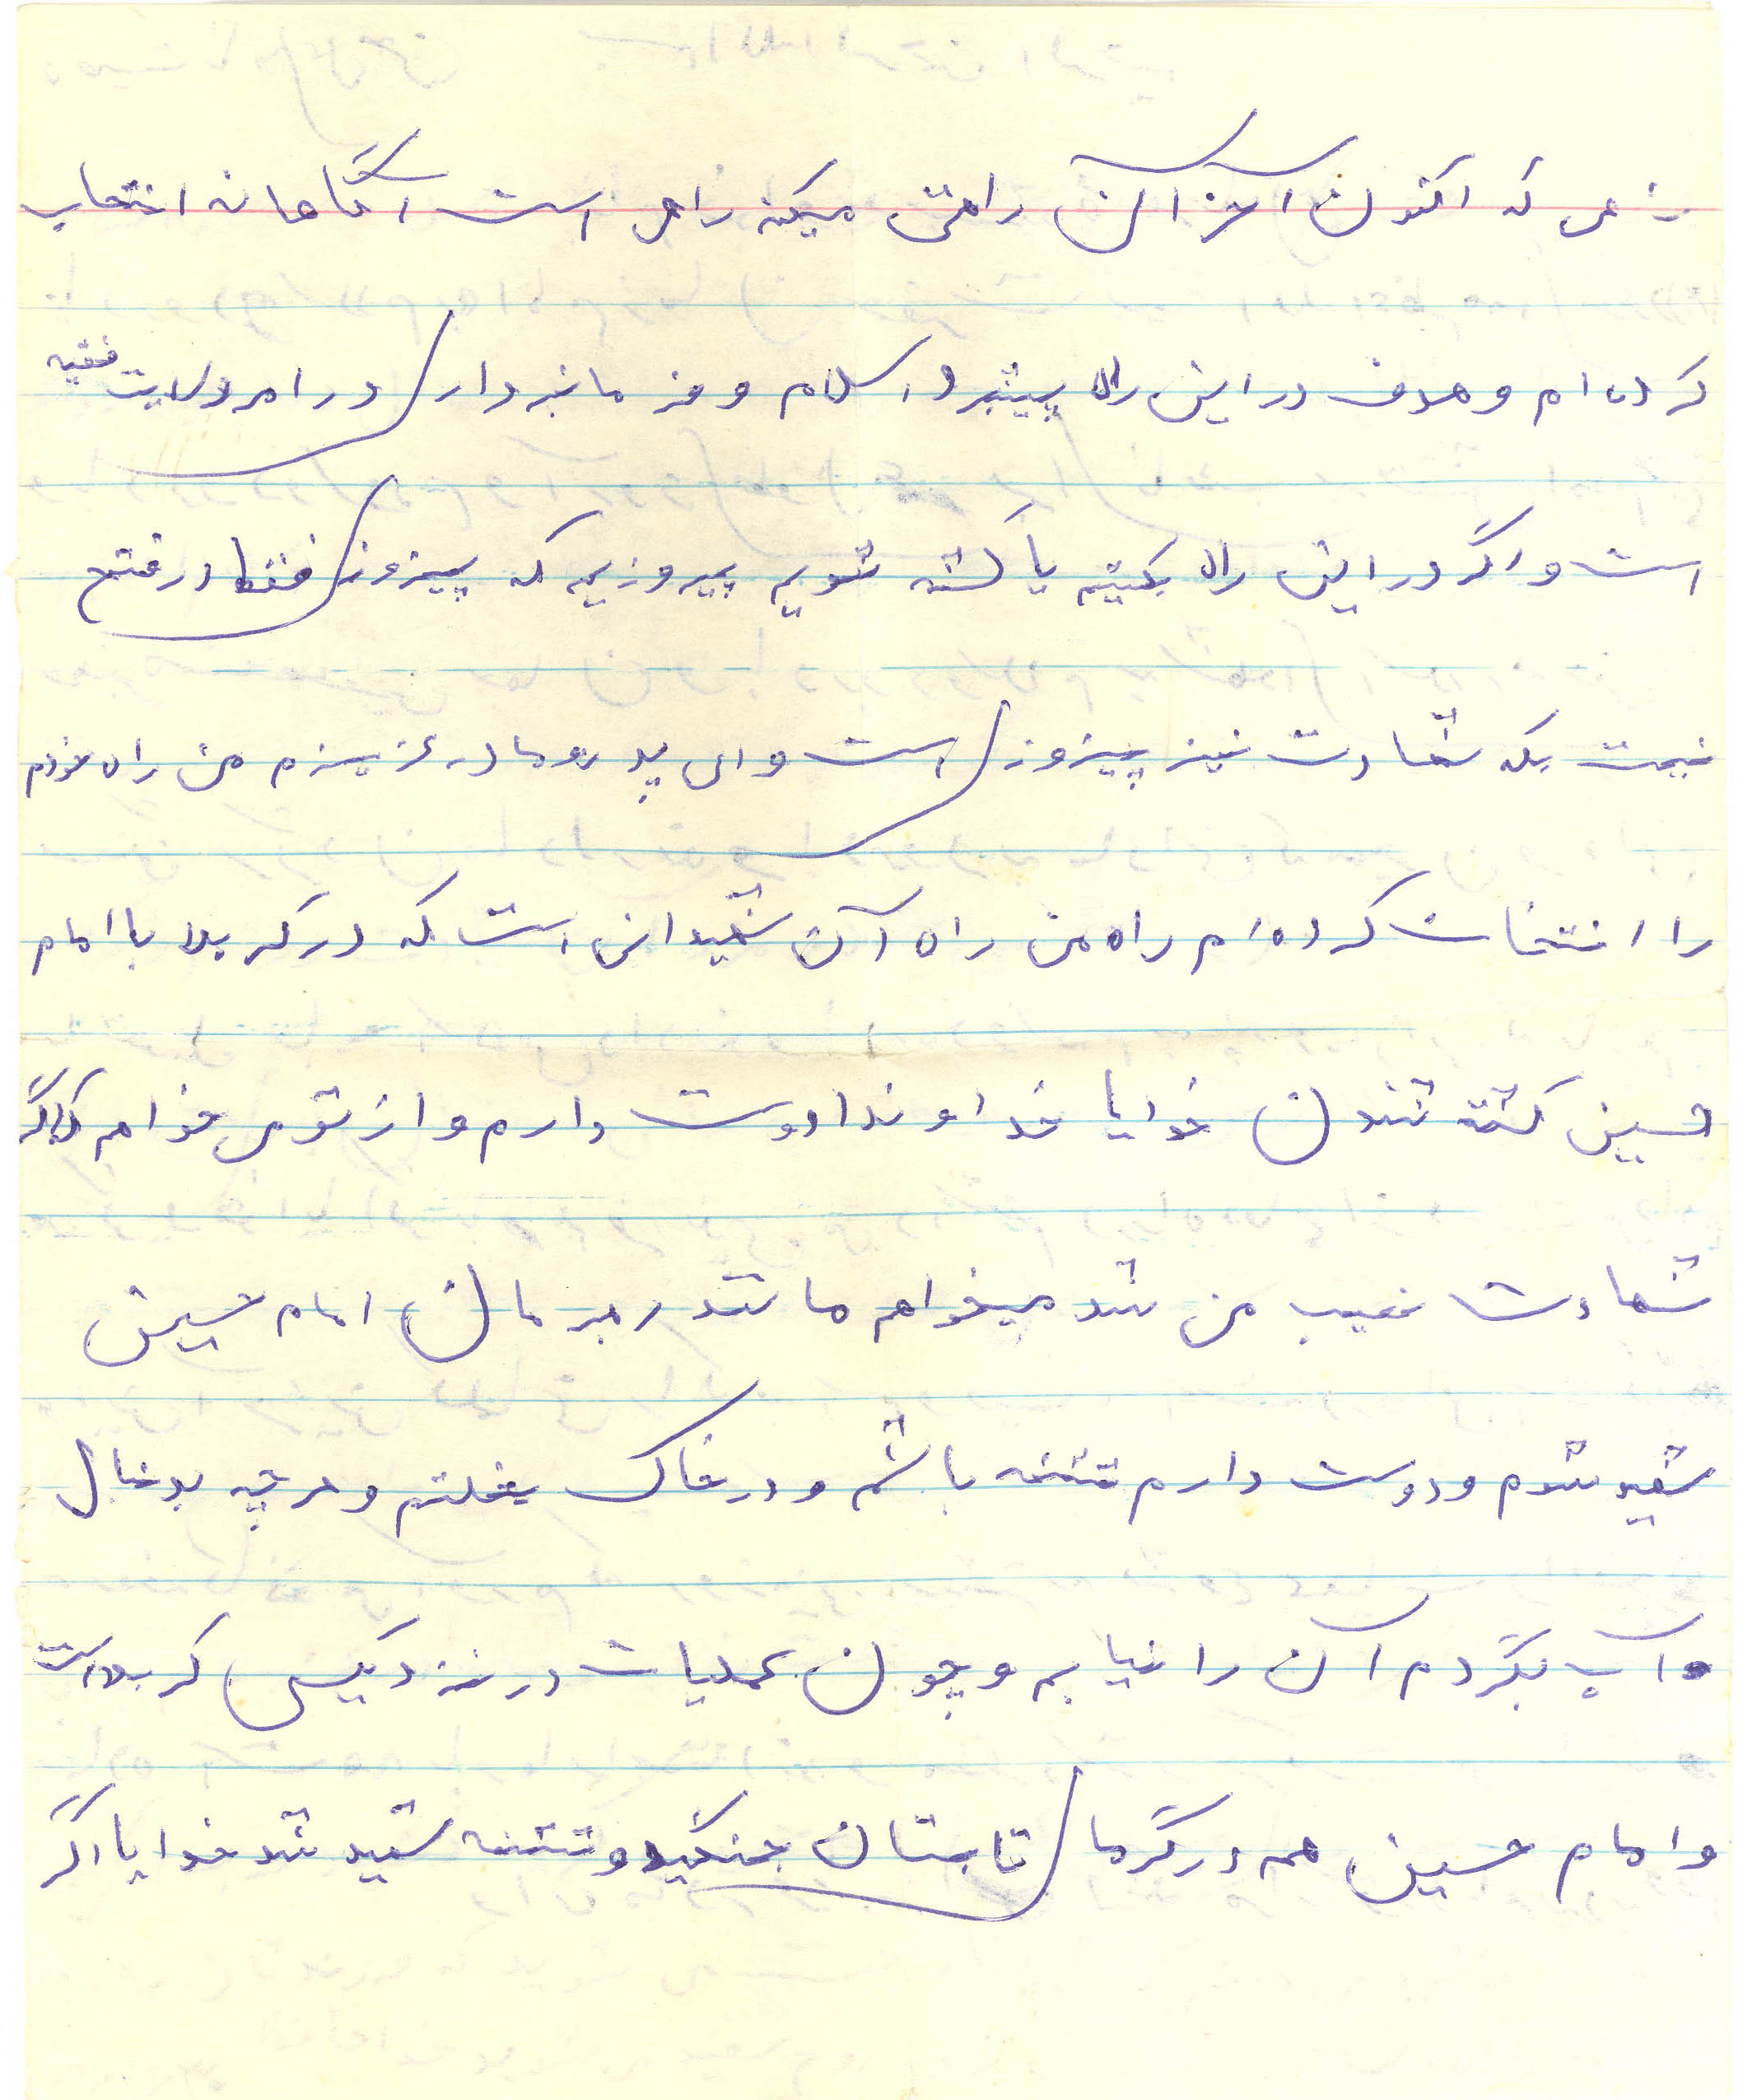 راهی که اکنون آخر آن راهتی میکنه راهی است آگاهانه انتخاب
کرده ام و هدف در این راه پیشبرد اسلام و فرمانبرداری در امر ولایت فقیه
است و اگر در این راه بکشیم یا کشته شویم پیروزیم که پیروزی فقط در فتح
نیست بلکه شهادت نیز پیروزی است و ای پدر و مادر عزیزم من راه خودم
را انتخاب کرده ام راه من راه آن شهیدانی است که در کربلا با امام
حسین کشته شدن خدایا خداوندا دوست دارم و از تو می خوام که اگر
شهادت نصیب من شد میخوام مانند رهبرمان امام حسین
شهید شدم و دوست دارم تشنه باشم و در خاک بغلتم و هر چه بدنبال
آب بگردم آن را نیابم و چون عملیات در نزدیکی کربلا است
و امام حسین هم در گرمای تابستان جنگید و تشنه شهید شد خدایا اگر